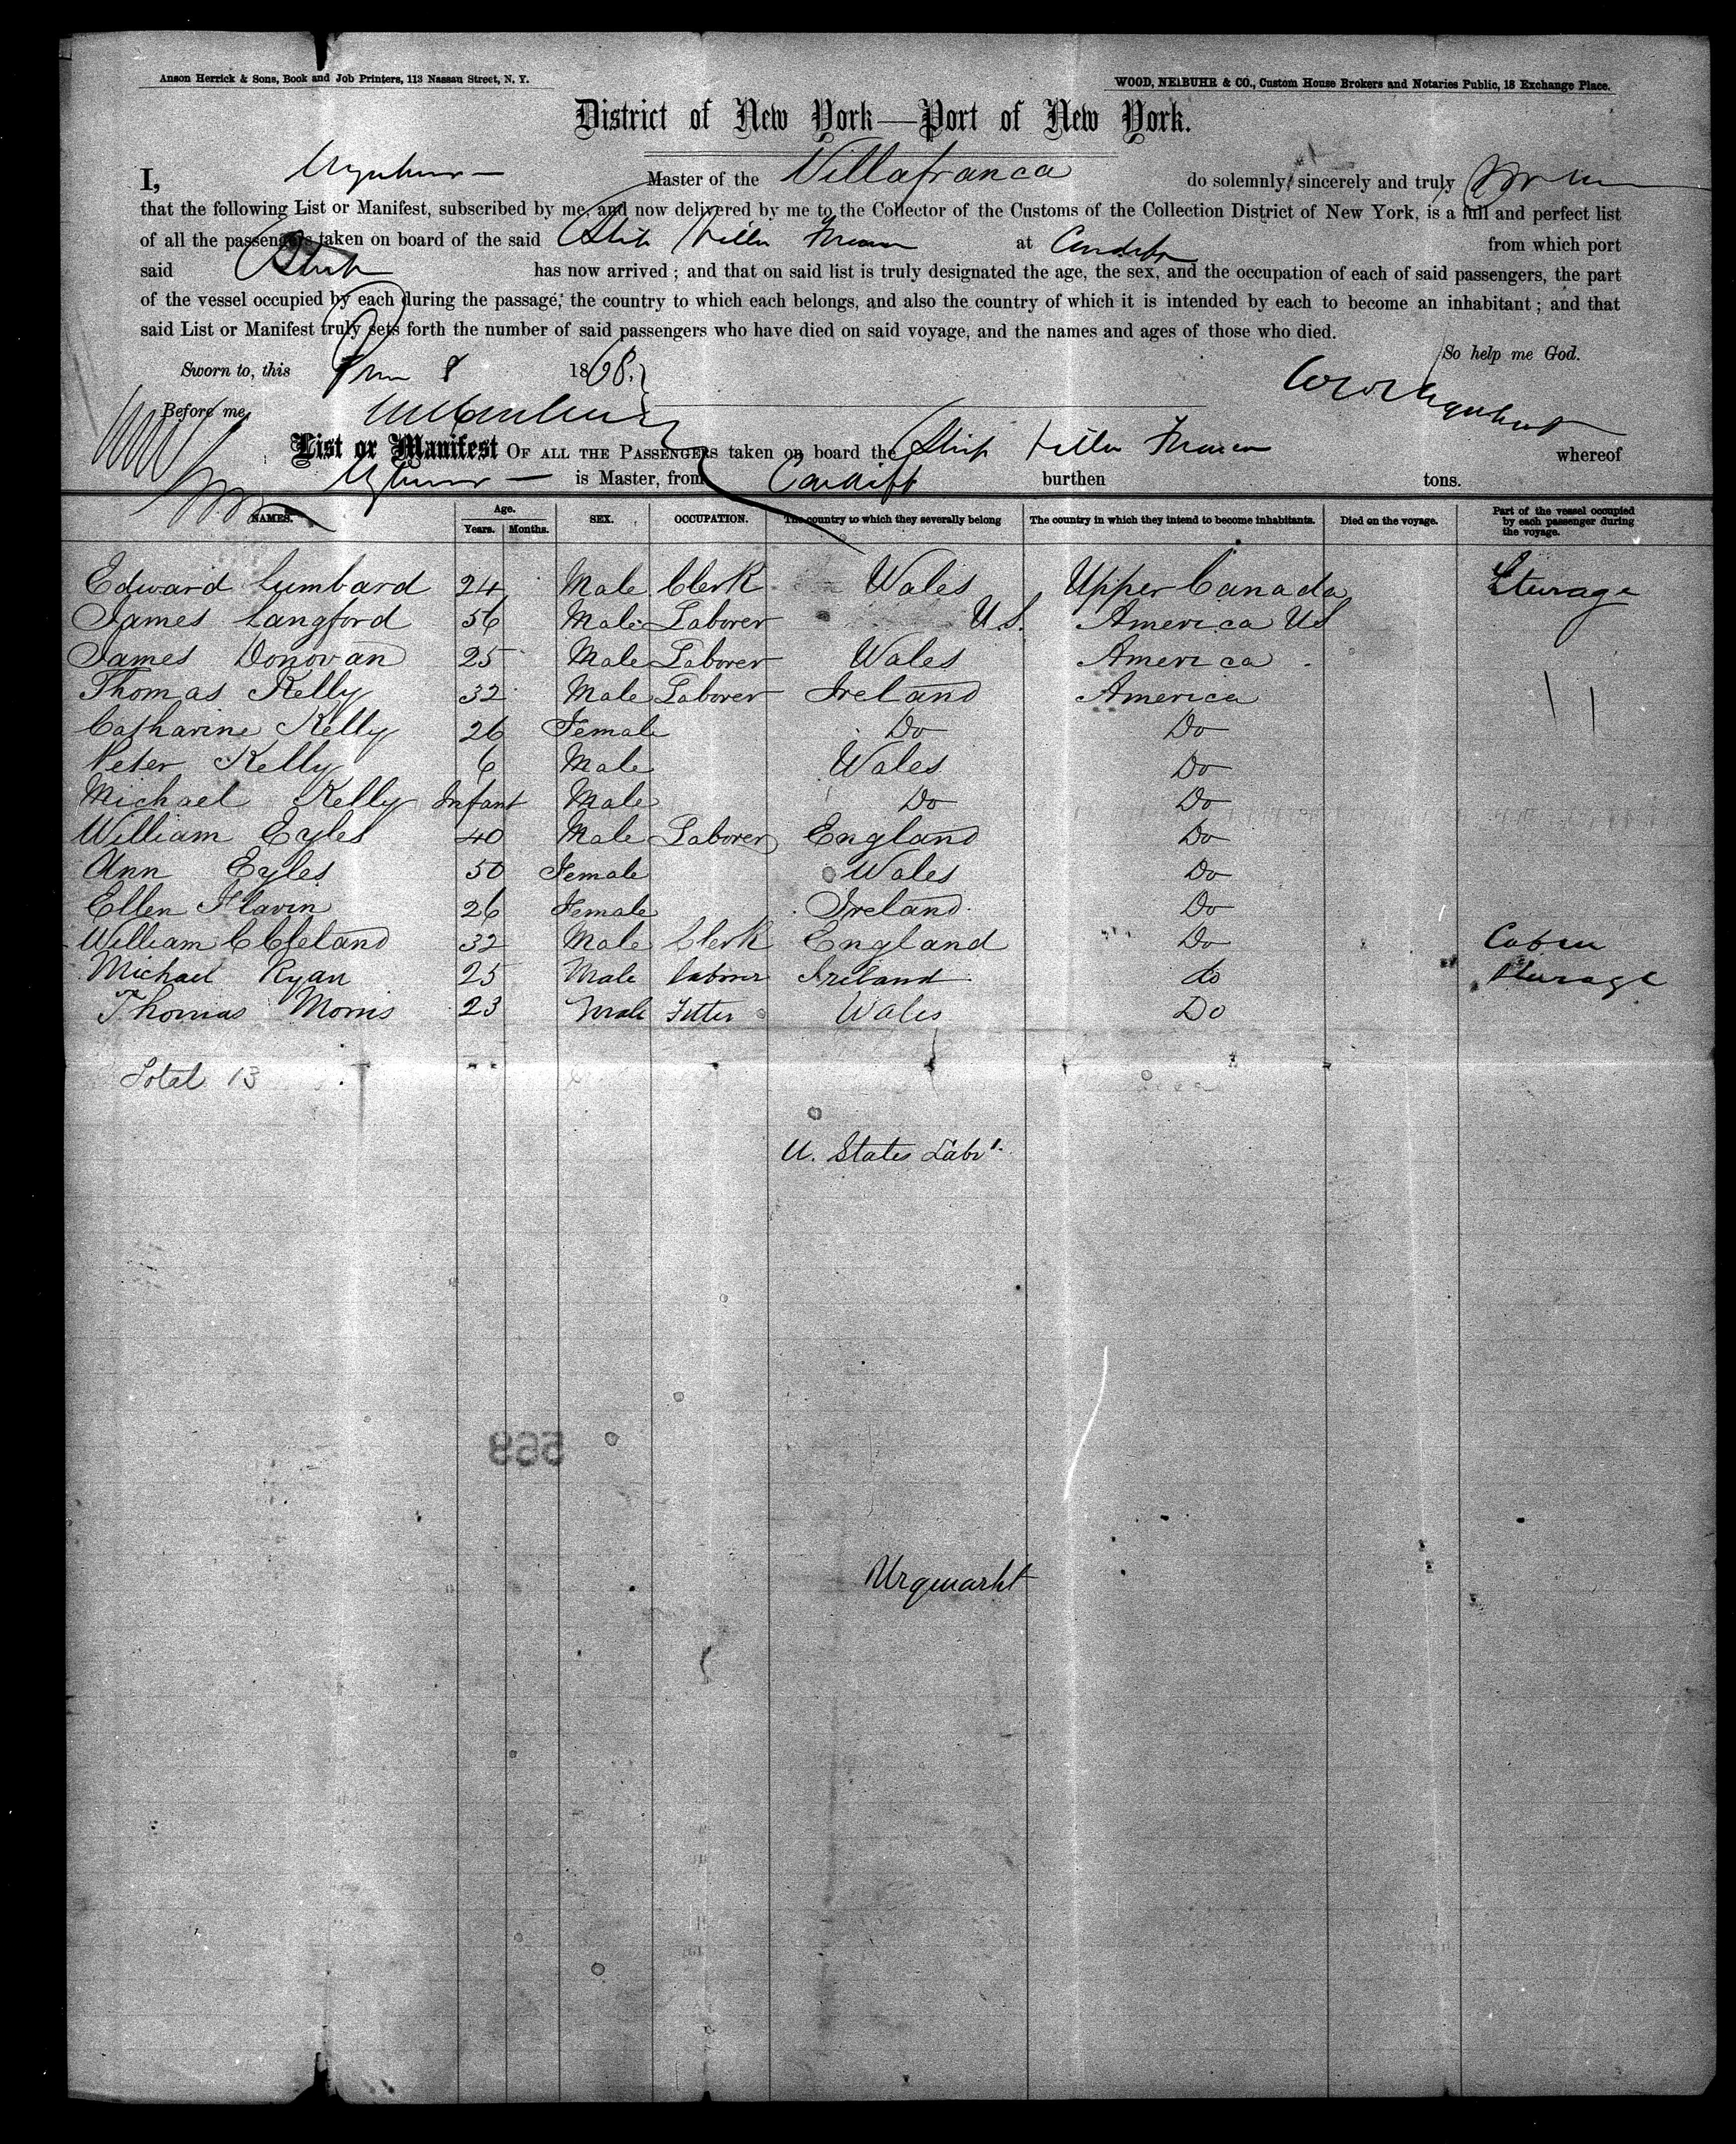 Anson Herrick & Sons, Book and Job Printers, 113 Nassau Street, N. Y.
WOOD, NEIBUHR & CO., Custom House Brokers and Notaries Public, 18 Exchange Place.
District of New York—Port of New York.
I, Master of the Villafranca do solemnly, sincerely and truly
that the following List or Manifest, subscribed by me, and now delivered by me to the Collector of the Customs of the Collection District of New York, is a full and perfect list
of all the passengers taken on board of the said Ship Villa Franca at Cardiff from which port
said Ship has now arrived ; and that on said list is truly designated the age, the sex, and the occupation of each of said passengers, the part
of the vessel occupied by each during the passage, the country to which each belongs, and also the country of which it is intended by each to become an inhabitant ; and that
said List or Manifest truly sets forth the number of said passengers who have died on said voyage, and the names and ages of those who died.
So help me God.
Sworn to, this 8 1868.
Before me,
List or Manifest OF ALL THE PASSENGERS taken on board the Ship Villa Franca whereof
is Master, from Cardiff burthen tons.
NAMES. Age. Years. Months. SEX. OCCUPATION. The country to which they severally belong The country in which they intend to become inhabitants. Died on the voyage. Part of the vessel occupied by each passenger during the voyage.
Edward Lumbard 24 Male Clerk Wales Upper Canada Sturage
James Langford 56 Male Laborer U.S. America US
James Donovan 25 Male Laborer Wales America
Thomas Kelly 32 Male Laborer Ireland America
Catharine Kelly 26 Female Do Do
Peter Kelly 6 Male Wales Do
Michael Kelly Infant Male Do Do
William Eyles 40 Male Laborer England Do
Ann Eyles 50 Female Wales Do
Ellen Flavin 26 Female Ireland Do
William C Cleland 32 Male Clerk England Do Cabin
Michael Ryan 25 Male Laborer Ireland do Sturage
Thomas Morris 23 Male Fitter Wales Do
Total 13
U. States Labr.
868
Urquarht